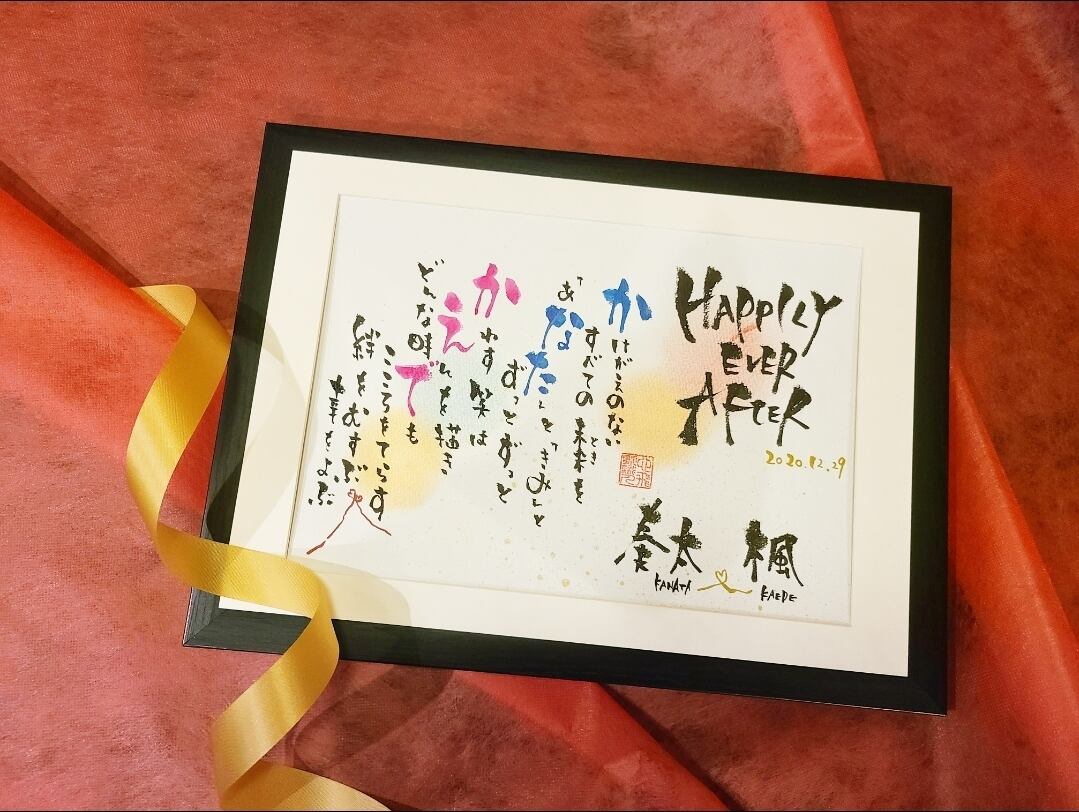 HAPPILY
EVER
AFTER
2020.12.29
奏太 楓
KANATA KAEDE
かけがえのない
すべての未来を
とき
「あなた」と「きみ」と
ずっとずっと
かわす笑は
えんを描き
どんな時でも
こころをてらす
絆をむすぶ
をよぶ